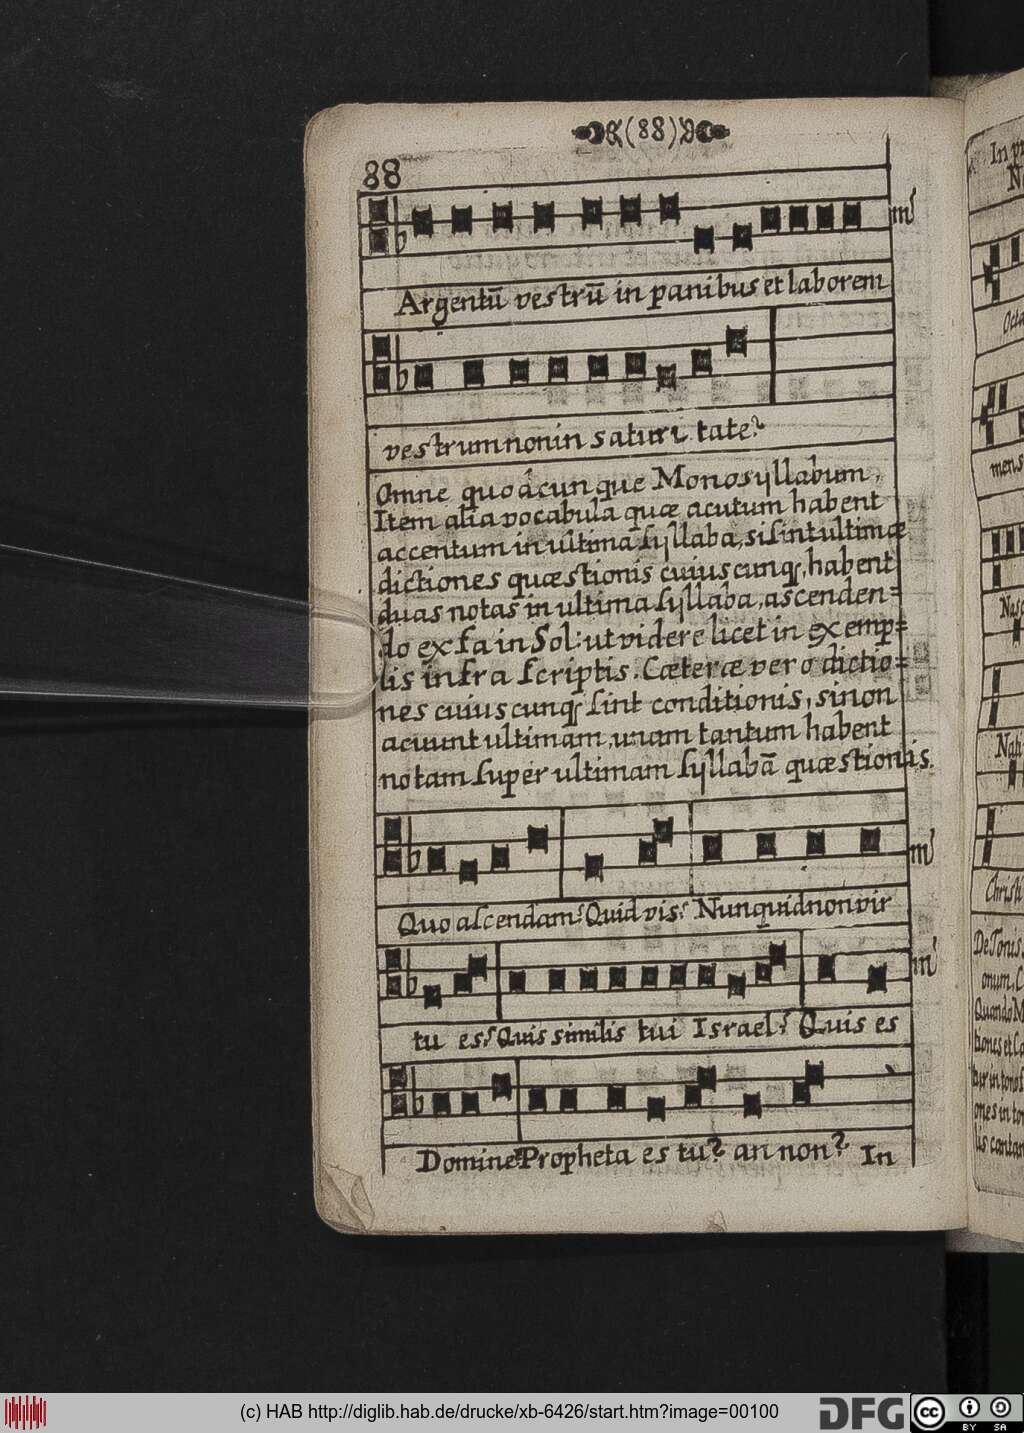 (88)
88
Argentū vestrū in panibus et laborem
vestrum non in saturi tate?
Omne quodcunque Monosyllabum,
Item alia vocabula quæ acutum habent
accentum in ultima ſyllaba, si ſint ultimæ
dictiones quæstionis cuiuscunqꝫ, habent
duas notas in ultima ſyllaba, ascenden=
do ex fa in Sol: ut videre licet in exemp=
lis infra ſcriptis. Cæteræ vero dictio=
nes cuiuscunqꝫ ſint conditionis, si non
acuunt ultimam, unam tantum habent
notam ſuper ultimam ſyllabā quæstionis.
Quo aſcendam? Quid vis? Nunquid non vir
tu es? Quis similis tui Israel? Quis es
Domine? Propheta es tu? an non? In
In
N
Octa
mens
Nasc
Nati
Christi
De Tonis
onum, C
Quando M
tiones et Ca
tur in tono
ones in to
lis cantan
(c) HAB http://diglib.hab.de/drucke/xb-6426/start.htm?image=00100
DFG
cc
BY SA